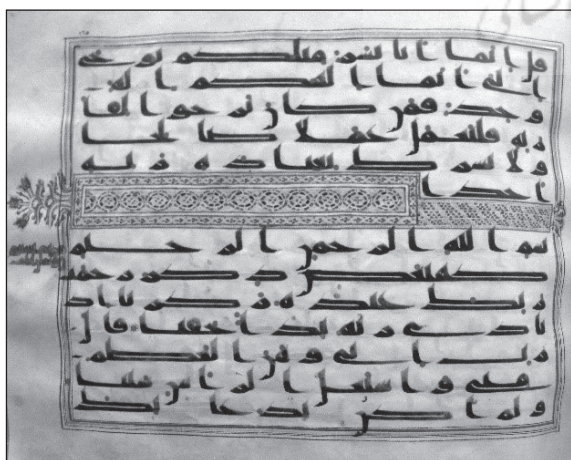 قل انما انا بشر مثلكم يوحى
الى انما الهكم اله
وحد فمن كان يرجوا لقا
ربه فليعمل عملا صلحا
ولا يشرك بعباده ربه
احدا
بسم الله الرحمن الرحيم
كهيعص ذكر رحمت
ربك عبده زكريا اذ
نادى ربه ندا خفيا قال
رب انى وهن العظم
منى واشتعل الراس شيبا
ولم اكن بدعا ئك